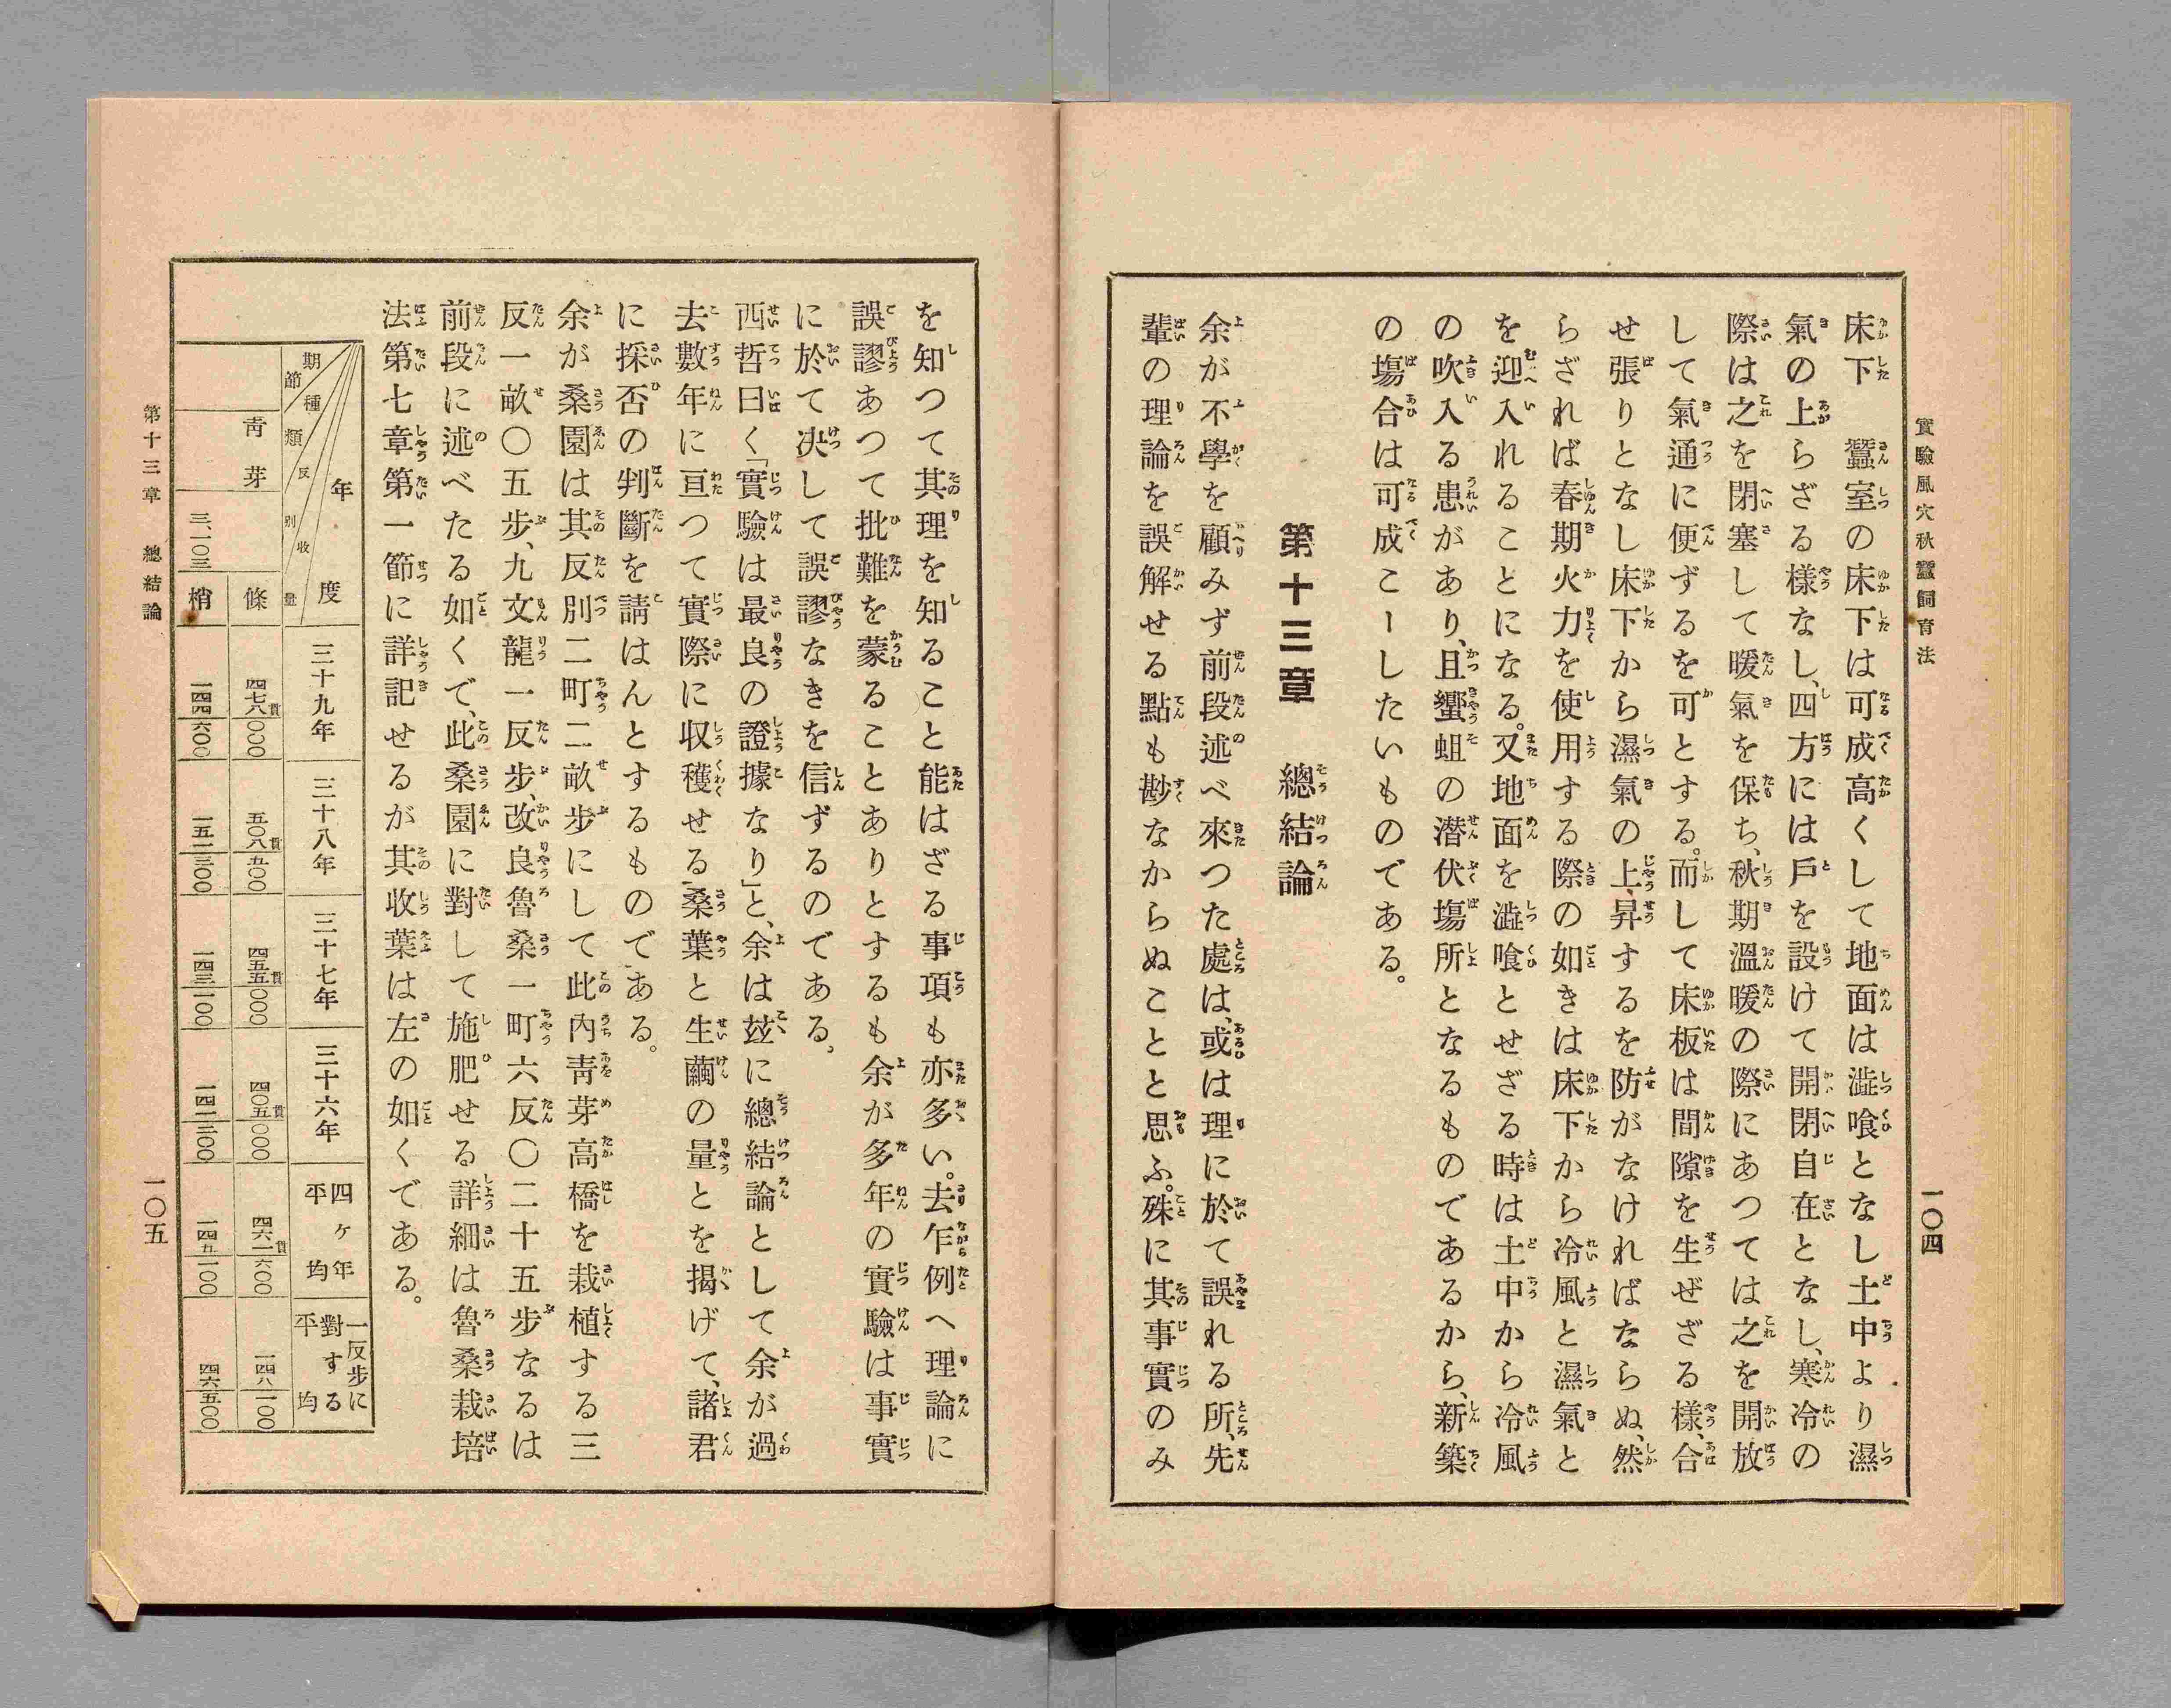 實驗風穴秋蠶飼育法
一〇四
床下　蠶室の床下は可成高くして地面は澁喰となし土中より濕
氣の上らざる樣なし、四方には戶を設けて開閉自在となし、寒冷の
際は之を閉塞して暖氣を保ち、秋期溫暖の際にあつては之を開放
して氣通に便ずるを可とする。而して床板は間隙を生ぜざる樣、合
せ張りとなし床下から濕氣の上昇するを防がなければならぬ、然
らざれば春期火力を使用する際の如きは床下から冷風と濕氣と
を迎入れることになる。又地面を澁喰とせざる時は土中から冷風
の吹入る患があり、且蠁蛆の潜伏場所となるものであるから、新築
の塲合は可成こーしたいものである。
第十三章　總結論
余が不學を顧みず前段述べ來つた處は、或は理に於て誤れる所、先
輩の理論を誤解せる點も尠なからぬことと思ふ。殊に其事實のみ
を知つて其理を知ること能はざる事項も亦多い。去乍例へ理論に
誤謬あつて批難を蒙ることありとするも余が多年の實驗は事實
に於て决して誤謬なきを信ずるのである。
西哲曰く「實驗は最良の證據なり」と、余は玆に總結論として余が過
去數年に亘つて實際に収穫せる桑葉と生繭の量とを揭げて、諸君
に採否の判斷を請はんとするものである。
余が桑園は其反別二町二畝步にして此內靑芽高橋を栽植する三
反一畝〇五步、九文龍一反步、改良魯桑一町六反〇二十五步なるは
前段に述べたる如くで、此桑園に對して施肥せる詳細は魯桑栽培
法第七章第一節に詳記せるが其收葉は左の如くである。
年度
期節
種類
反別
收量
三十九年
三十八年
三十七年
三十六年
四ヶ年平均
一反步に對する平均
靑芽
三、一〇三
條
四七八貫〇〇〇
五〇八貫五〇〇
四五五貫〇〇〇
四〇五貫〇〇〇
四六一貫六〇〇
一四八一〇〇
梢
一四四六〇〇
一五一三〇〇
一四三一〇〇
一四一三〇〇
一四五一〇〇
四六五〇〇
第十三章　總結論
一〇五